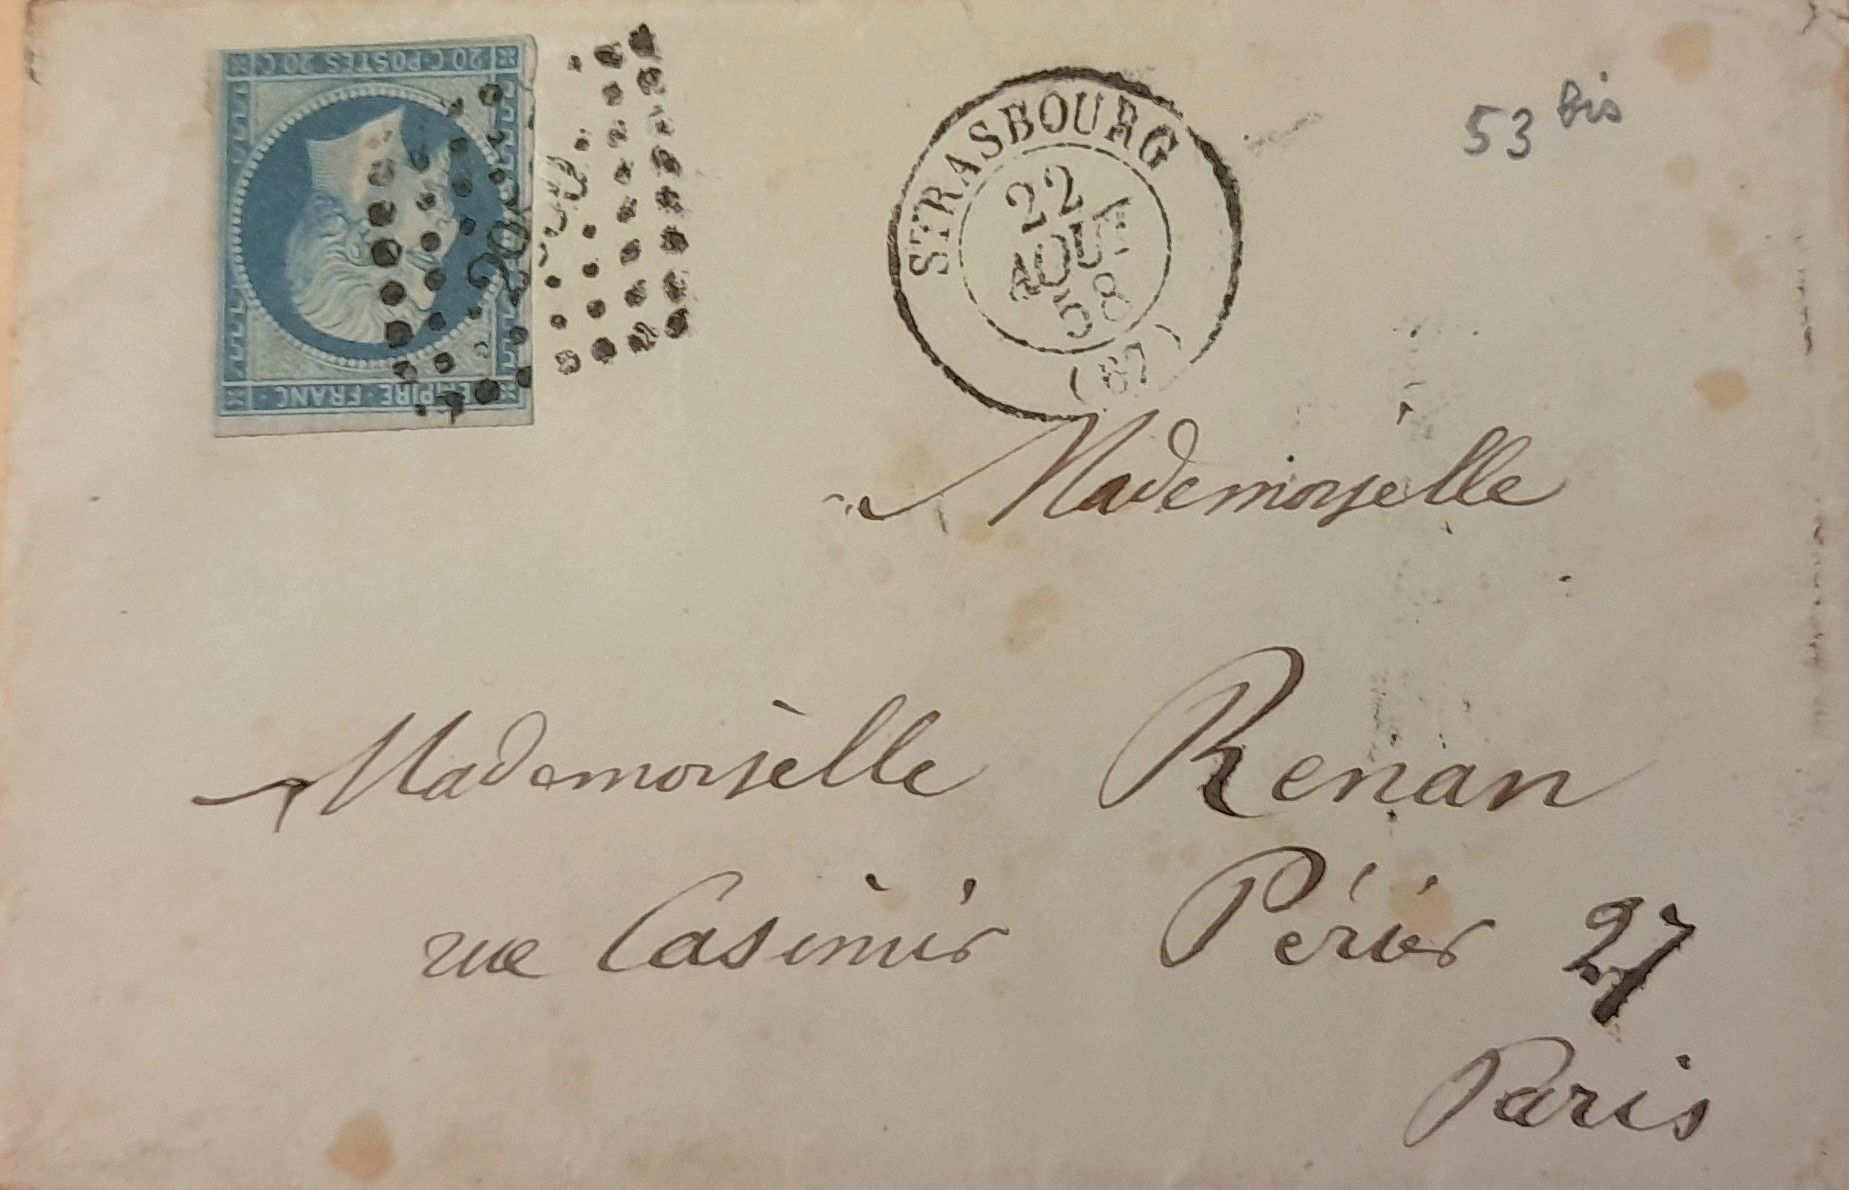 20 C. POSTES 20 C.
EMPIRE FRANC.
STRASBOURG
22
53 bis
Mademoiselle
Mademoiselle Renan
rue Casimir Périer 27
Paris